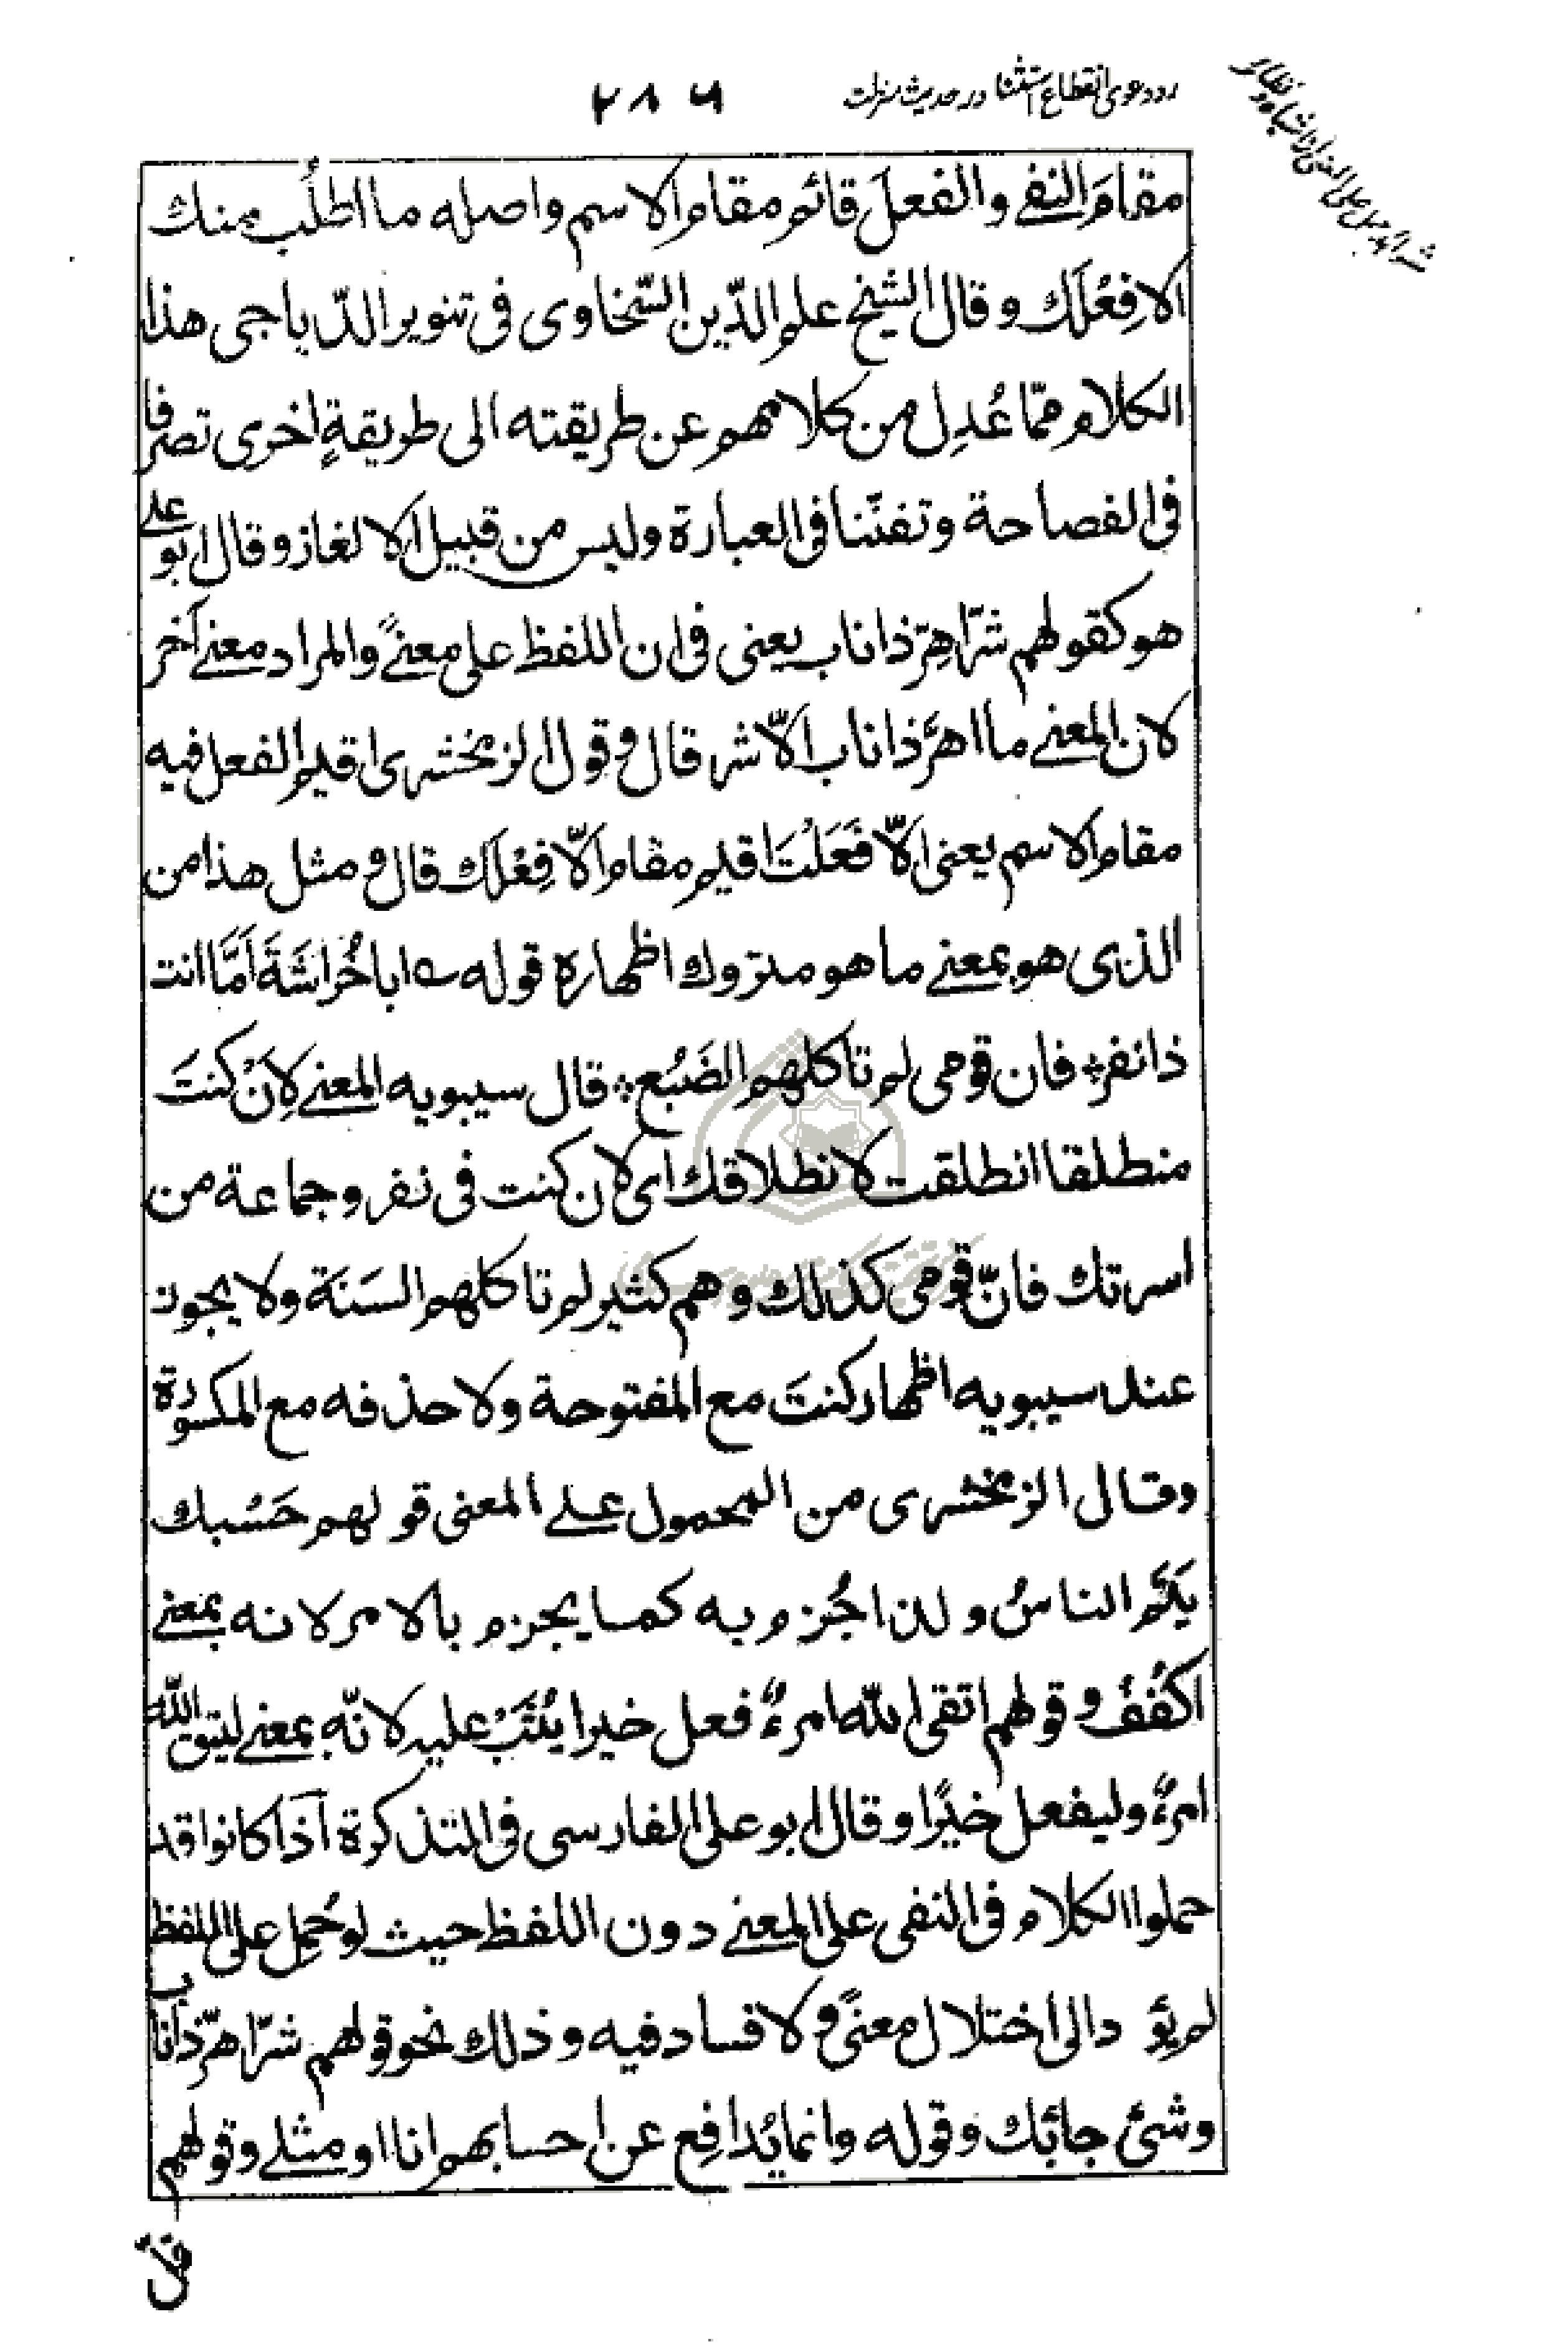 رد دعوی انقطاع استثنا در حدیث منزلت
۲۸۶
مقامَ النفی والفعلَ قائم مقام الاسم واصله ما اطلُب منك
الا فِعْلَك وقال الشیخ علم الدّین السّخاوی فی تنویر الدّیاجی هذا
الكلام ممّا عُدِل من كلامهم عن طریقته الی طریقةٍ اخری تصرفا
فی الفصاحة وتفنّنا فی العبارة ولیس من قبیل الالغاز وقال ابو علی
هو كقولهم شرّ اهرّ ذا ناب یعنی فی ان اللفظ علی معنےً والمراد معنے آخر
لان المعنے ما اهرَّ ذا ناب الّا شر قال وقول الزمخشری اقیم الفعل فیه
مقام الاسم یعنی الّا فَعَلْتَ اقیم مقام الّا فِعْلَك قال ومثل هذا من
الذی هو بمعنے ما هو متروك اظهاره قوله ے ابا خُراشَةَ اَمَّا انت
ذا نفر ÷ فان قومی لم تاكلهم الضَبُع ÷ قال سیبویه المعنے لِاَنْ كنتَ
منطلقا انطلقت لانطلاقك ای لان كنت فی نفر وجماعة من
اسرتك فانّ قومی كذلك وهم كثیر لم تاكلهم السَنَة ولا یجوز
عند سیبویه اظهار كنتَ مع المفتوحة ولا حذفه مع المكسورة
وقال الزمخشری من المحمول علے المعنی قولهم حَسْبك
یَنَمِ الناسُ ولذا جُزِم به كما یجزم بالامر لانه بمعنے
اكْفُفْ وقولهم اتقی اللّه امرءٌ فعل خیرا یُثَبْ علیه لانّه بمعنے لیتق اللّه
امرءٌ ولیفعل خیرًا وقال ابو علی الفارسی فی التذكرة آذا كانوا قد
حملوا الكلام فی النفی علی المعنے دون اللفظ حیث لو حُمِل علی اللفظ
لم یؤد الی اختلال معنیً ولا فساد فیه وذلك نحو قولهم شرّ اهرّ ذا ناب
وشئ جائبك وقوله وانما یُدافِع عن احسابهم انا او مثلے وقولهم
قلّ